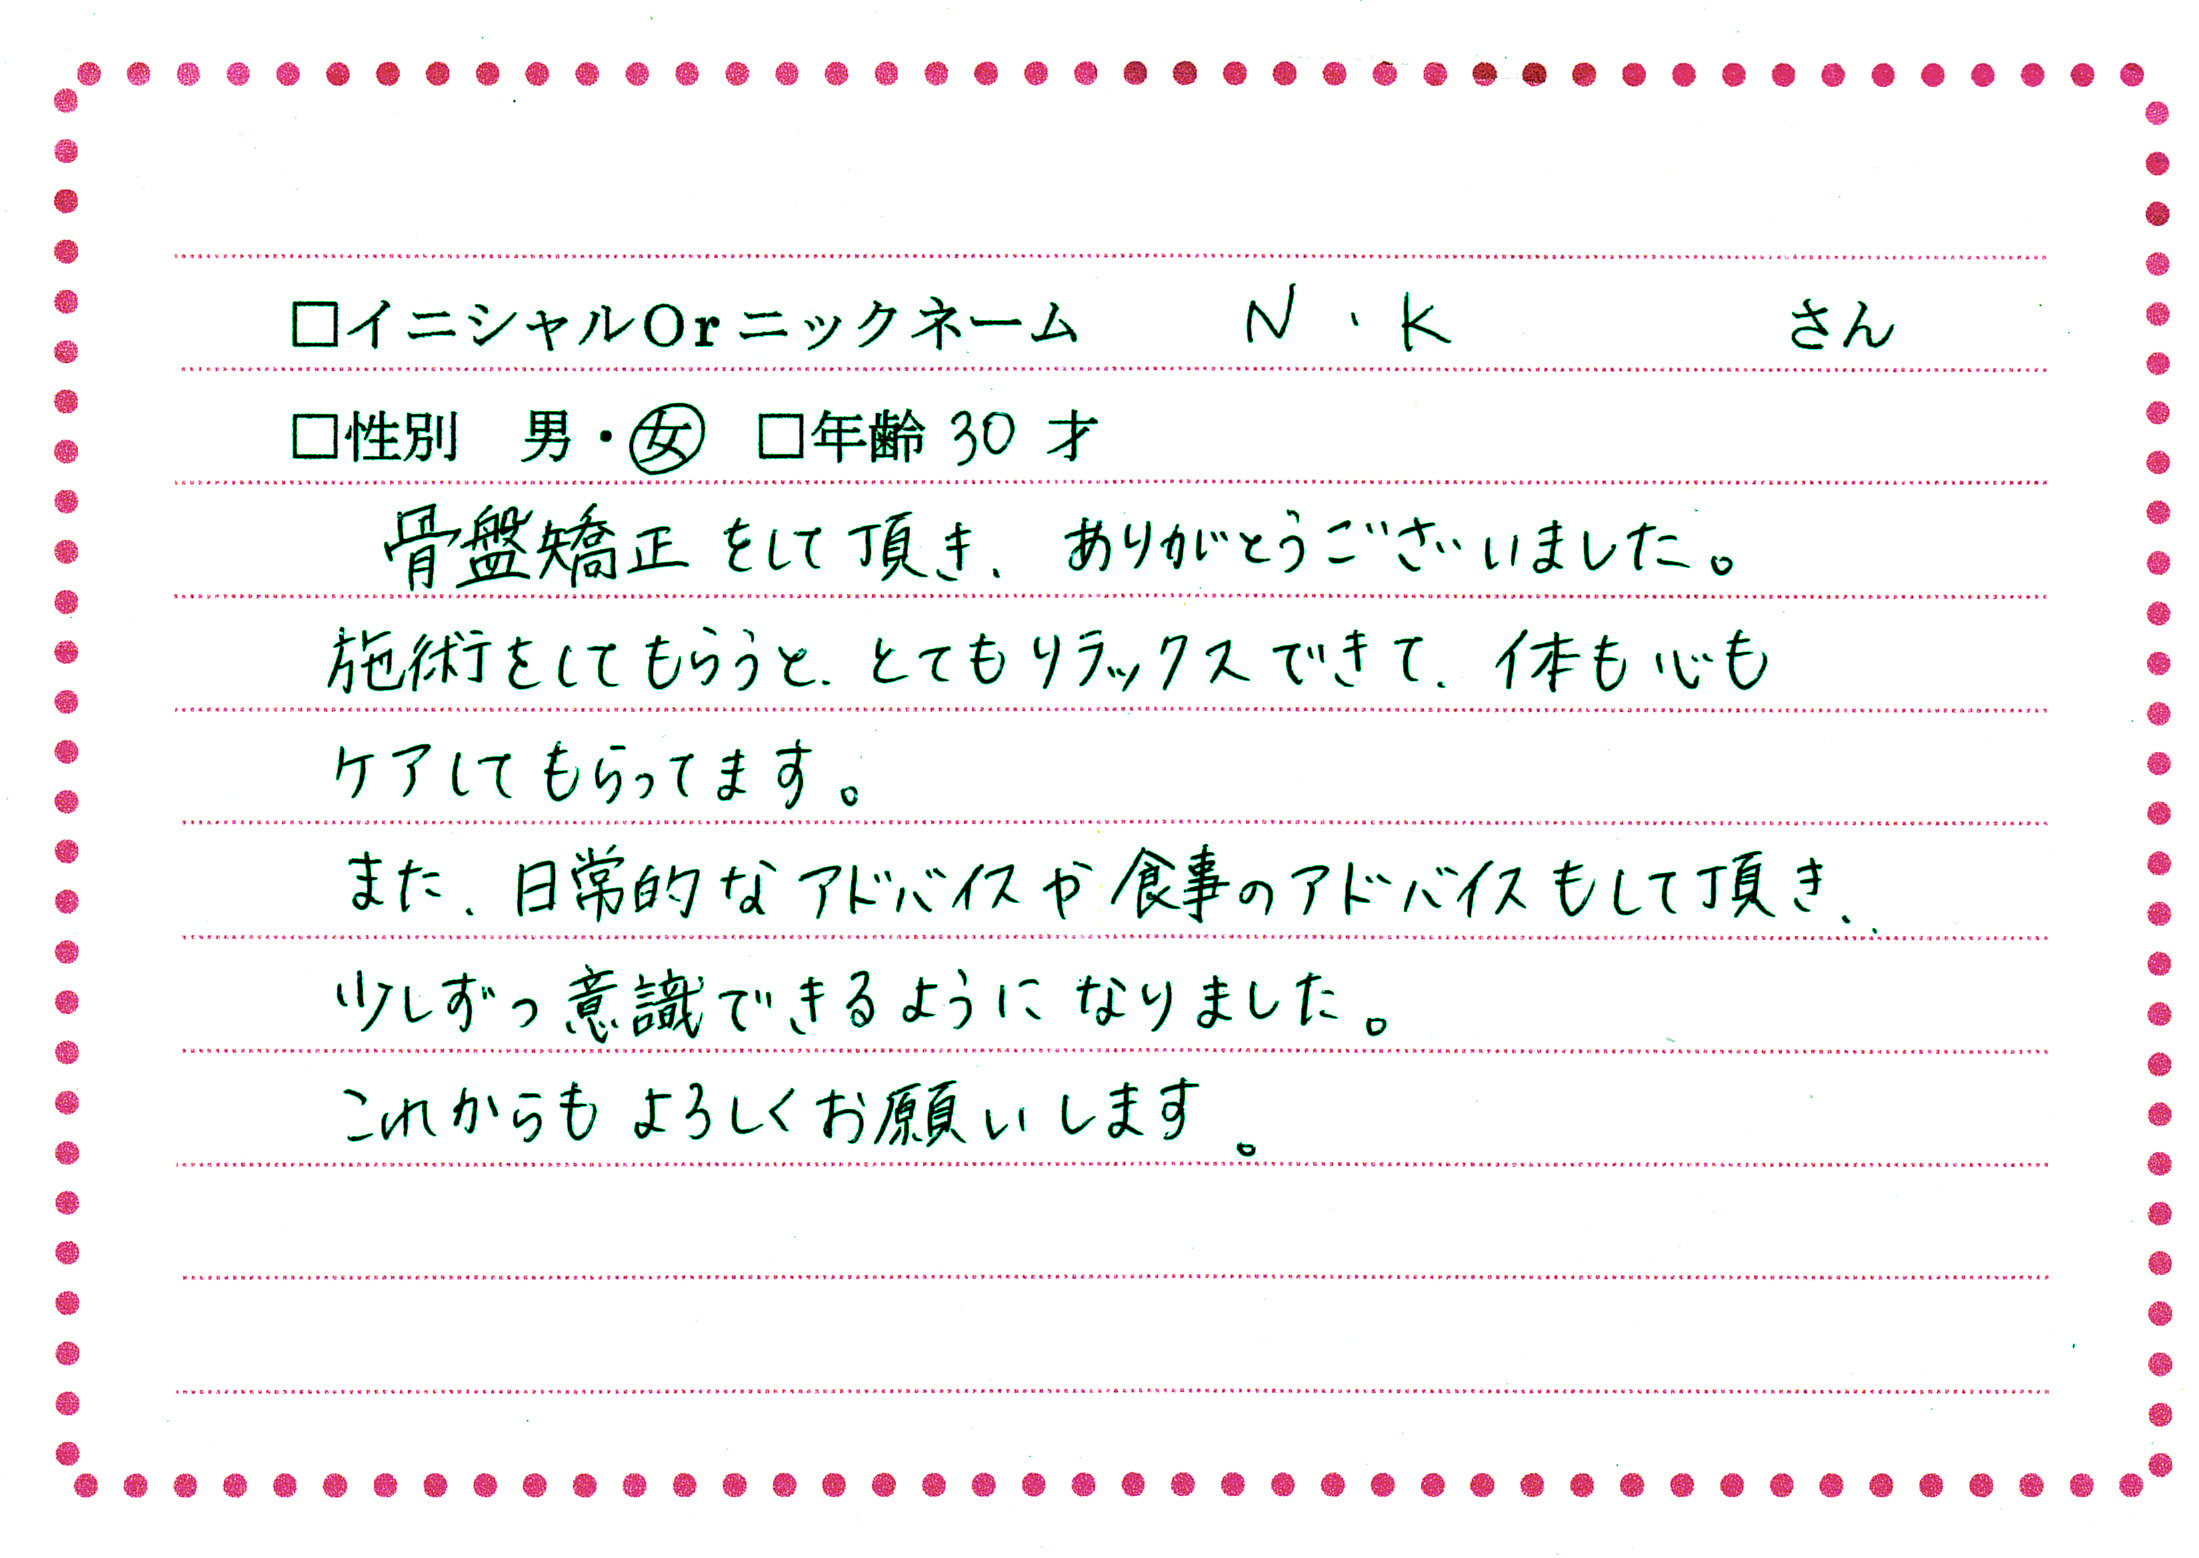 □イニシャルOrニックネーム N・K さん
□性別 男・女 □年齢 30 才
骨盤矯正をして頂き、ありがとうございました。
施術をしてもらうと、とてもリラックスできて、体も心も
ケアしてもらってます。
また、日常的なアドバイスや食事のアドバイスもして頂き、
少しずつ意識できるようになりました。
これからもよろしくお願いします。